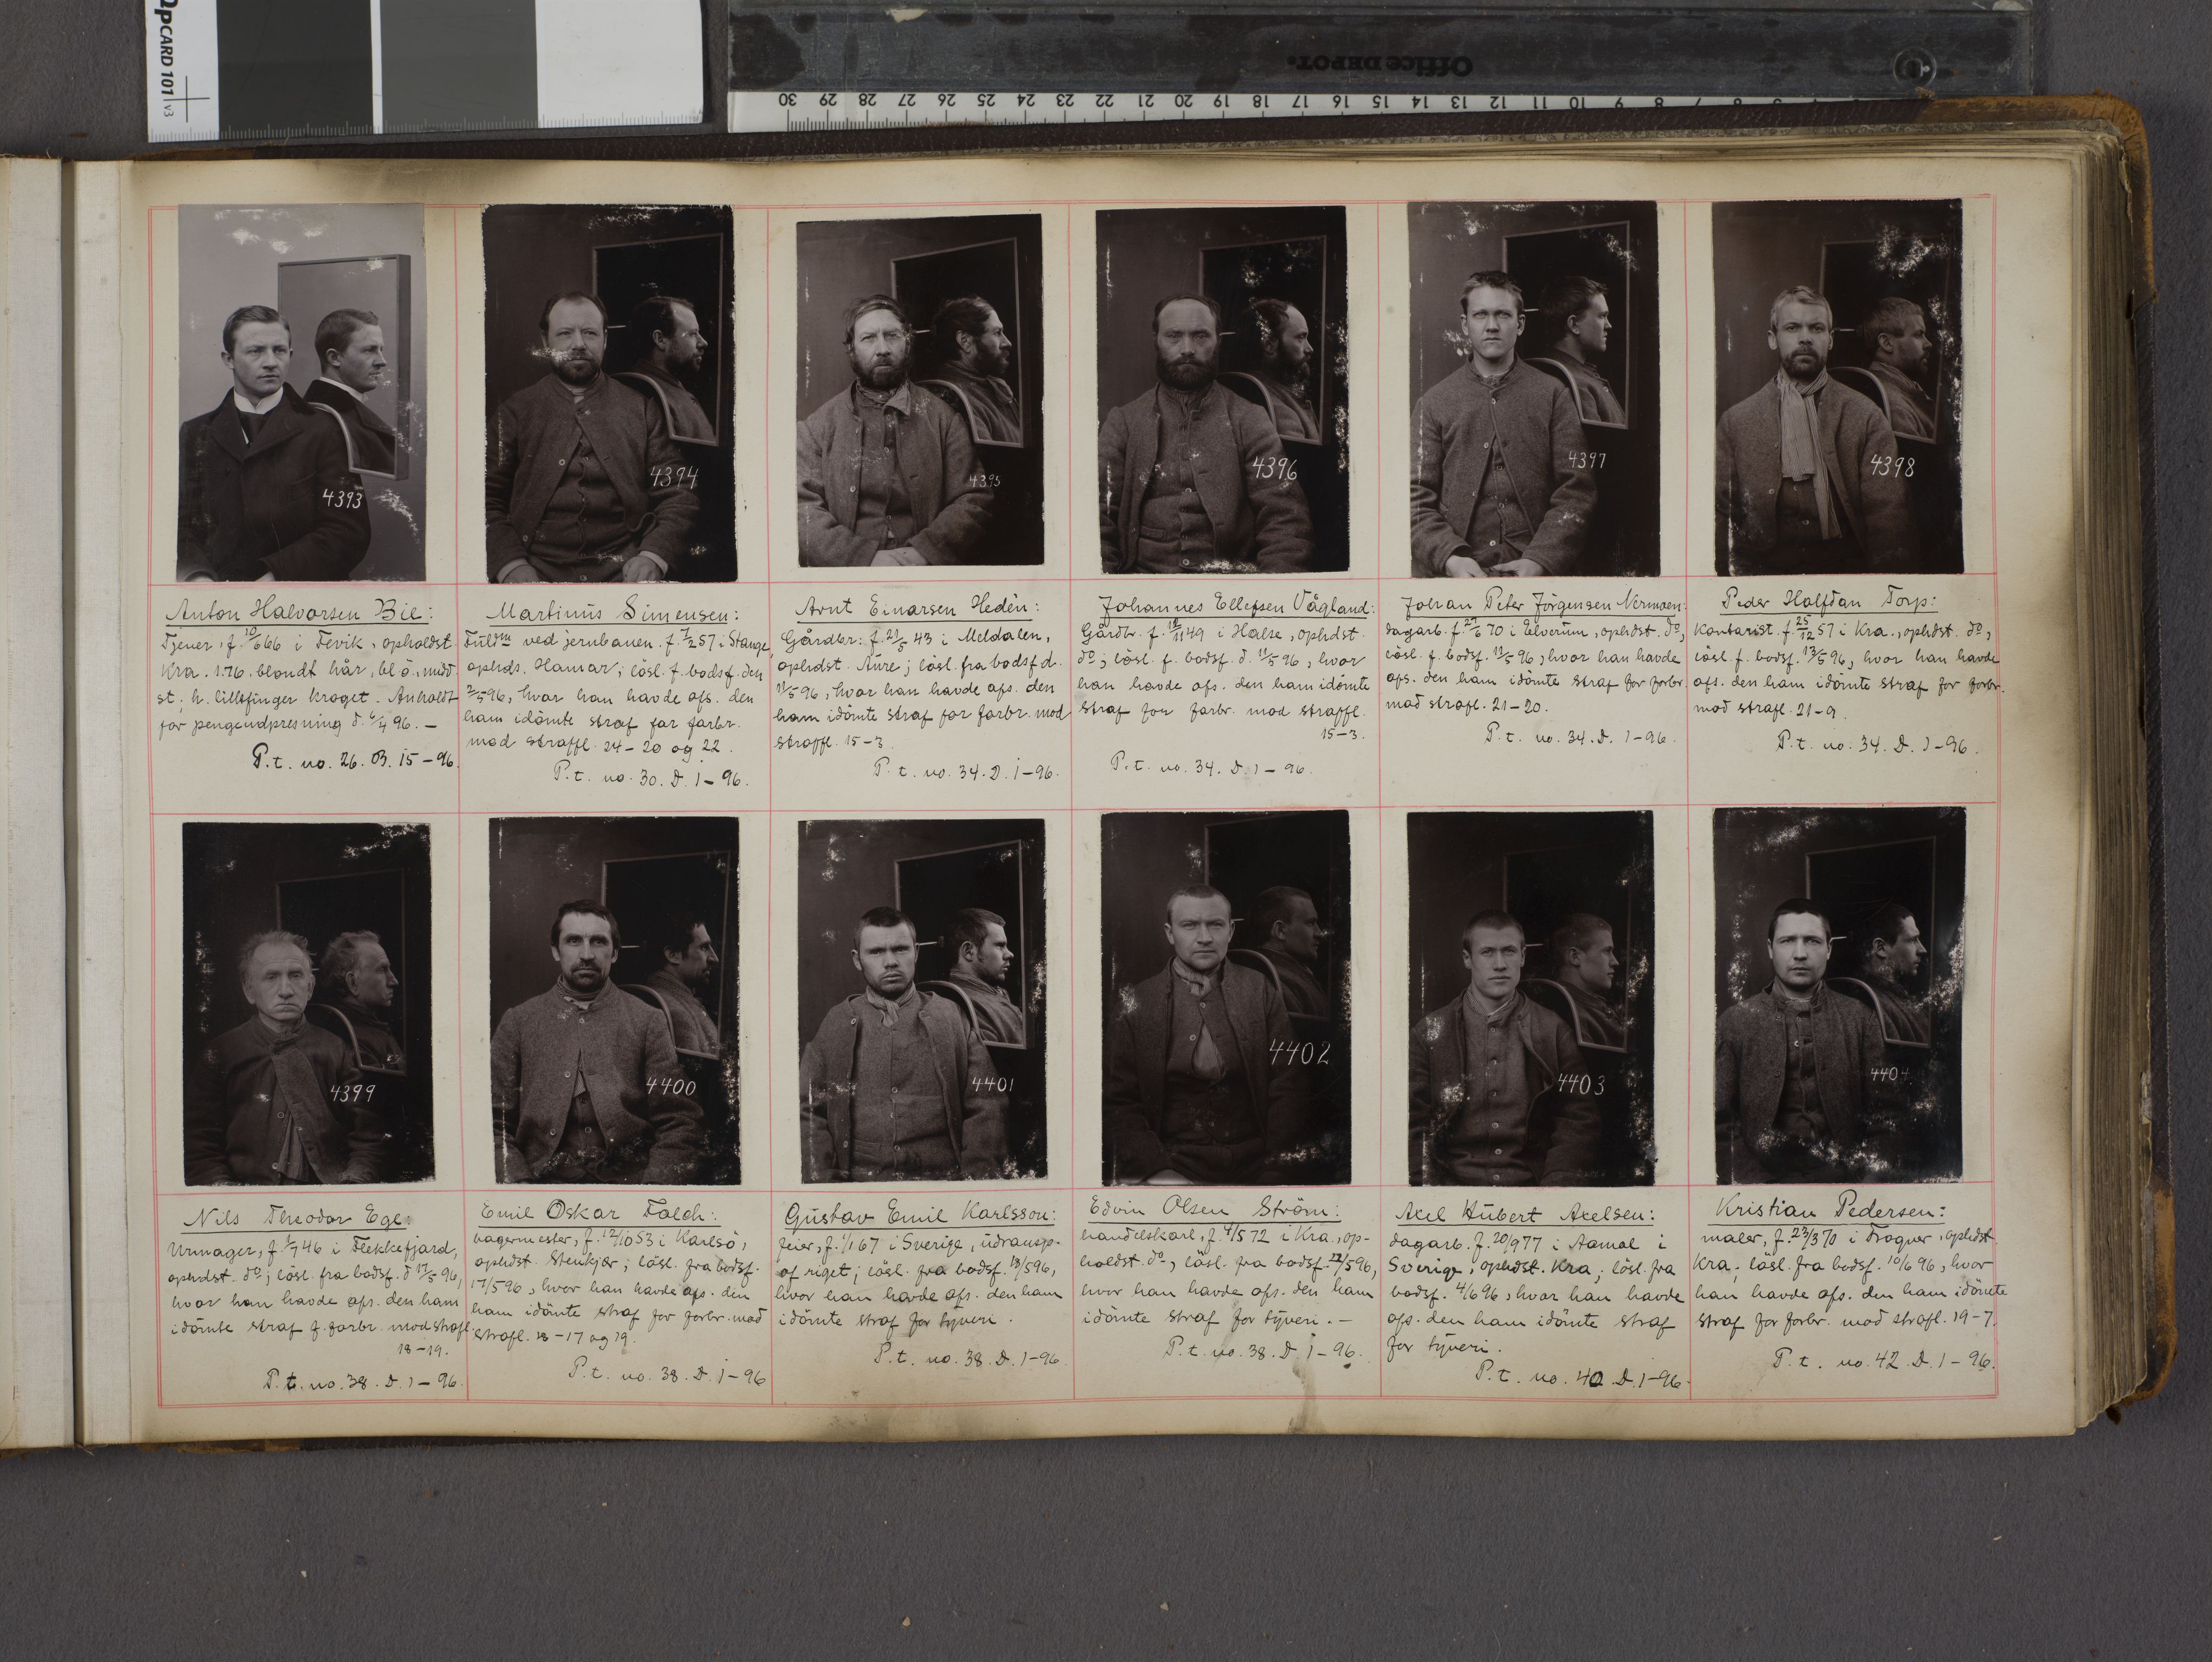 OpCARD 101 v3
Office DEPOT.
30 29 28 27 26 25 24 23 22 21 20 19 18 17 16 15 14 13 12 11 10 9 8 7 6 5 4 3
4393
4394
4395
4396
4397
4398
Anton Halvorsen Bie:
Tjener, f. 10/6 66 i Fevik, opholdst
Kra. 1.76, blondt hår, bl ö., midd
st; h. lillefinger kroget. Anholdt
for pengeudpresning d. 4/4 96. —
P.t. no. 26. B. 15 – 96.
Martinus Simensen:
Fuldm ved jernbanen. f. 7/2 57 i Stange,
opholds. Hamar; lösl. f. bodsf. den
2/5 96, hvor han havde afs. den
ham idömte straf for forbr.
mod straffl. 24 – 20 og 22.
P.t. no. 30. D. 1 – 96.
Arnt Einarsen Hedèn:
Gårdbr: f. 21/5 43 i Meldalen,
opholdst. Aure; lösl. fra bodsf d.
11/5 96, hvor han havde afs. den
ham idömte straf for forbr. mod
straffl. 15 – 3.
P.t. no. 34. D. 1 – 96.
Johannes Ellefsen Vågland:
Gårdb. f. 12/11 49 i Halse, ophdst.
do; lösl. f. bodsf. d. 11/5 96, hvor
han havde afs. den ham idömte
straf for forbr. mod straffl.
15 – 3.
P.t. no. 34. D. 1 – 96.
Johan Peter Jörgensen Nermoen:
dagarb. f. 27/6 70 i Elverum, ophdst. do,
lösl. f. bodsf. 11/5 96, hvor han havde
afs. den ham idömte straf for forbr.
mod strafl. 21 – 20.
P.t. no. 34. D. 1 – 96.
Peder Halfdan Torp:
Kontorist. f. 25/12 57 i Kra., ophdst. do,
lösl. f. bodsf. 13/5 96, hvor han havde
afs. den ham idömte straf for forbr.
mod strafl. 21 – 9.
P.t. no: 34. D. 1 – 96.
4399
4400
4401
4402
4403
4404
Nils Theodor Ege:
Urmager, f. 1/7 46 i Flekkefjord,
ophdst. do; lösl. fra bodsf. d 17/5 96,
hvor han havde afs. den ham
idömte straf f. forbr. mod strafl.
18 – 19.
P.t. no. 38. D. 1 – 96.
Emil Oskar Falch:
bagermester, f. 12/10 53 i Karlsö,
ophdst. Stenkjær; lösl. fra bodsf.
17/5 96, hvor han havde afs. den
ham idömte straf for forbr. mod
strafl. 18 – 17 og 19.
P.t. no. 38. D. 1 – 96
Gustav Emil Karlsson:
feier, f. 1/1 67 i Sverige, udtransp.
af riget; lösl. fra bodsf. 18/5 96,
hvor han havde afs. den ham
idömte straf for tyveri.
P.t. no. 38. D. 1 – 96.
Edvin Olsen Ström:
handelskarl, f. 4/5 72 i Kra., op-
holdst. do, lösl. fra bodsf. 22/5 96,
hvor han havde afs. den ham
idömte straf for tyveri. —
P.t. no. 38. D. 1 – 96.
Axel Hubert Axelsen:
dagarb. f. 20/9 77 i Aamal i
Sverige, ophdst. Kra; lösl. fra
bodsf. 4/6 96, hvor han havde
afs. den ham idömte straf
for tyveri.
P.t. no. 40. D. 1 – 96.
Kristian Pedersen:
maler, f. 23/3 70 i Frogner, ophdst.
Kra; lösl. fra bodsf. 10/6 96, hvor
han havde afs. den ham idömte
straf for forbr. mod strafl. 19 – 7.
P.t. no. 42. D. 1 – 96.